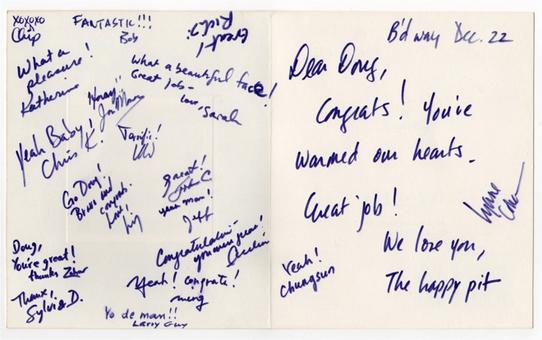 XOXOXO
Chip
FANTASTIC!!!
Bob
Great!
Rick?
What a
pleasure!
Katherine
Hooray!!
What a beautiful face!
Great job -
love, Sarah
Yeah Baby!
Chris K.
Terrific!
Go Doug!
Bravo and
congrats.
Love!
Liz
great!
John C
your man!
Jeff
Doug,
You're great!
thanks
Thanx!
Sylvia D.
Congratulations -
you man you!
Yeah! congrats!
ming
Yo de man!!
Larry Guy
B'dway Dec. 22
Dear Doug,
Congrats! You've
warmed our hearts.
Great job!
We love you,
The happy pit
Yeah!
Chungsun